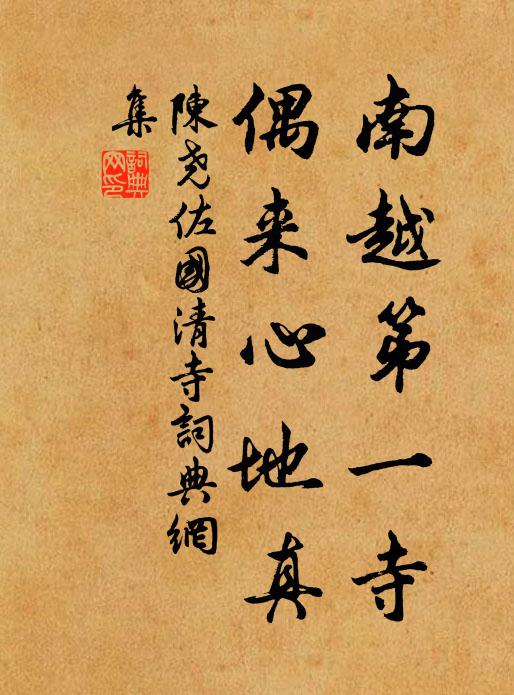 南越第一寺
偶来心地真
陳尧佐國清寺詞典網
集
詞典網印